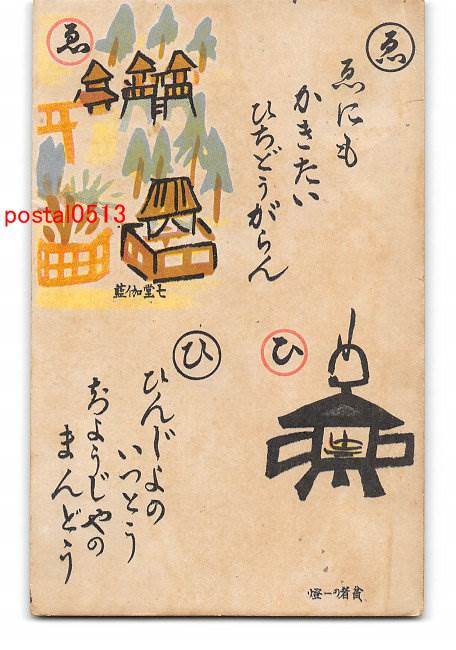 ゑ
ゑにも
かきたい
ひちどうがらん
ゑ
七堂伽藍
postal0513
ひ
ひ
ひんじよの
いつとう
ちようじやの
まんどう
貧者の一燈